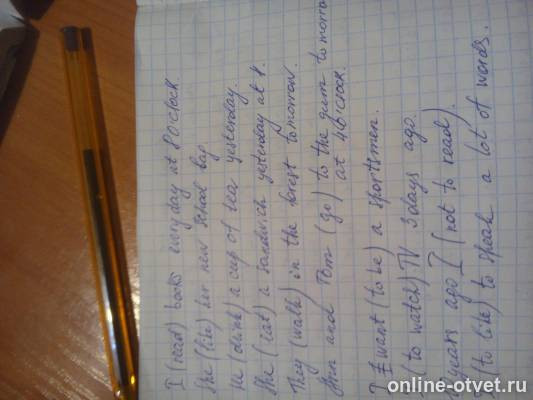 I (read) books everyday at 8 o'clock
She (like) her new school bag.
He (drink) a cup of tea yesterday.
She (eat) a sandwich yesterday at 8.
They (walk) in the forest tomorrow.
Ann and Tom (go) to the gum tomorrow
at 4 o'clock.
I want (to be) a sportsmen.
(to watch) TV 3 days ago.
years ago I (not to read).
(to like) to speak a lot of words.
online-otvet.ru